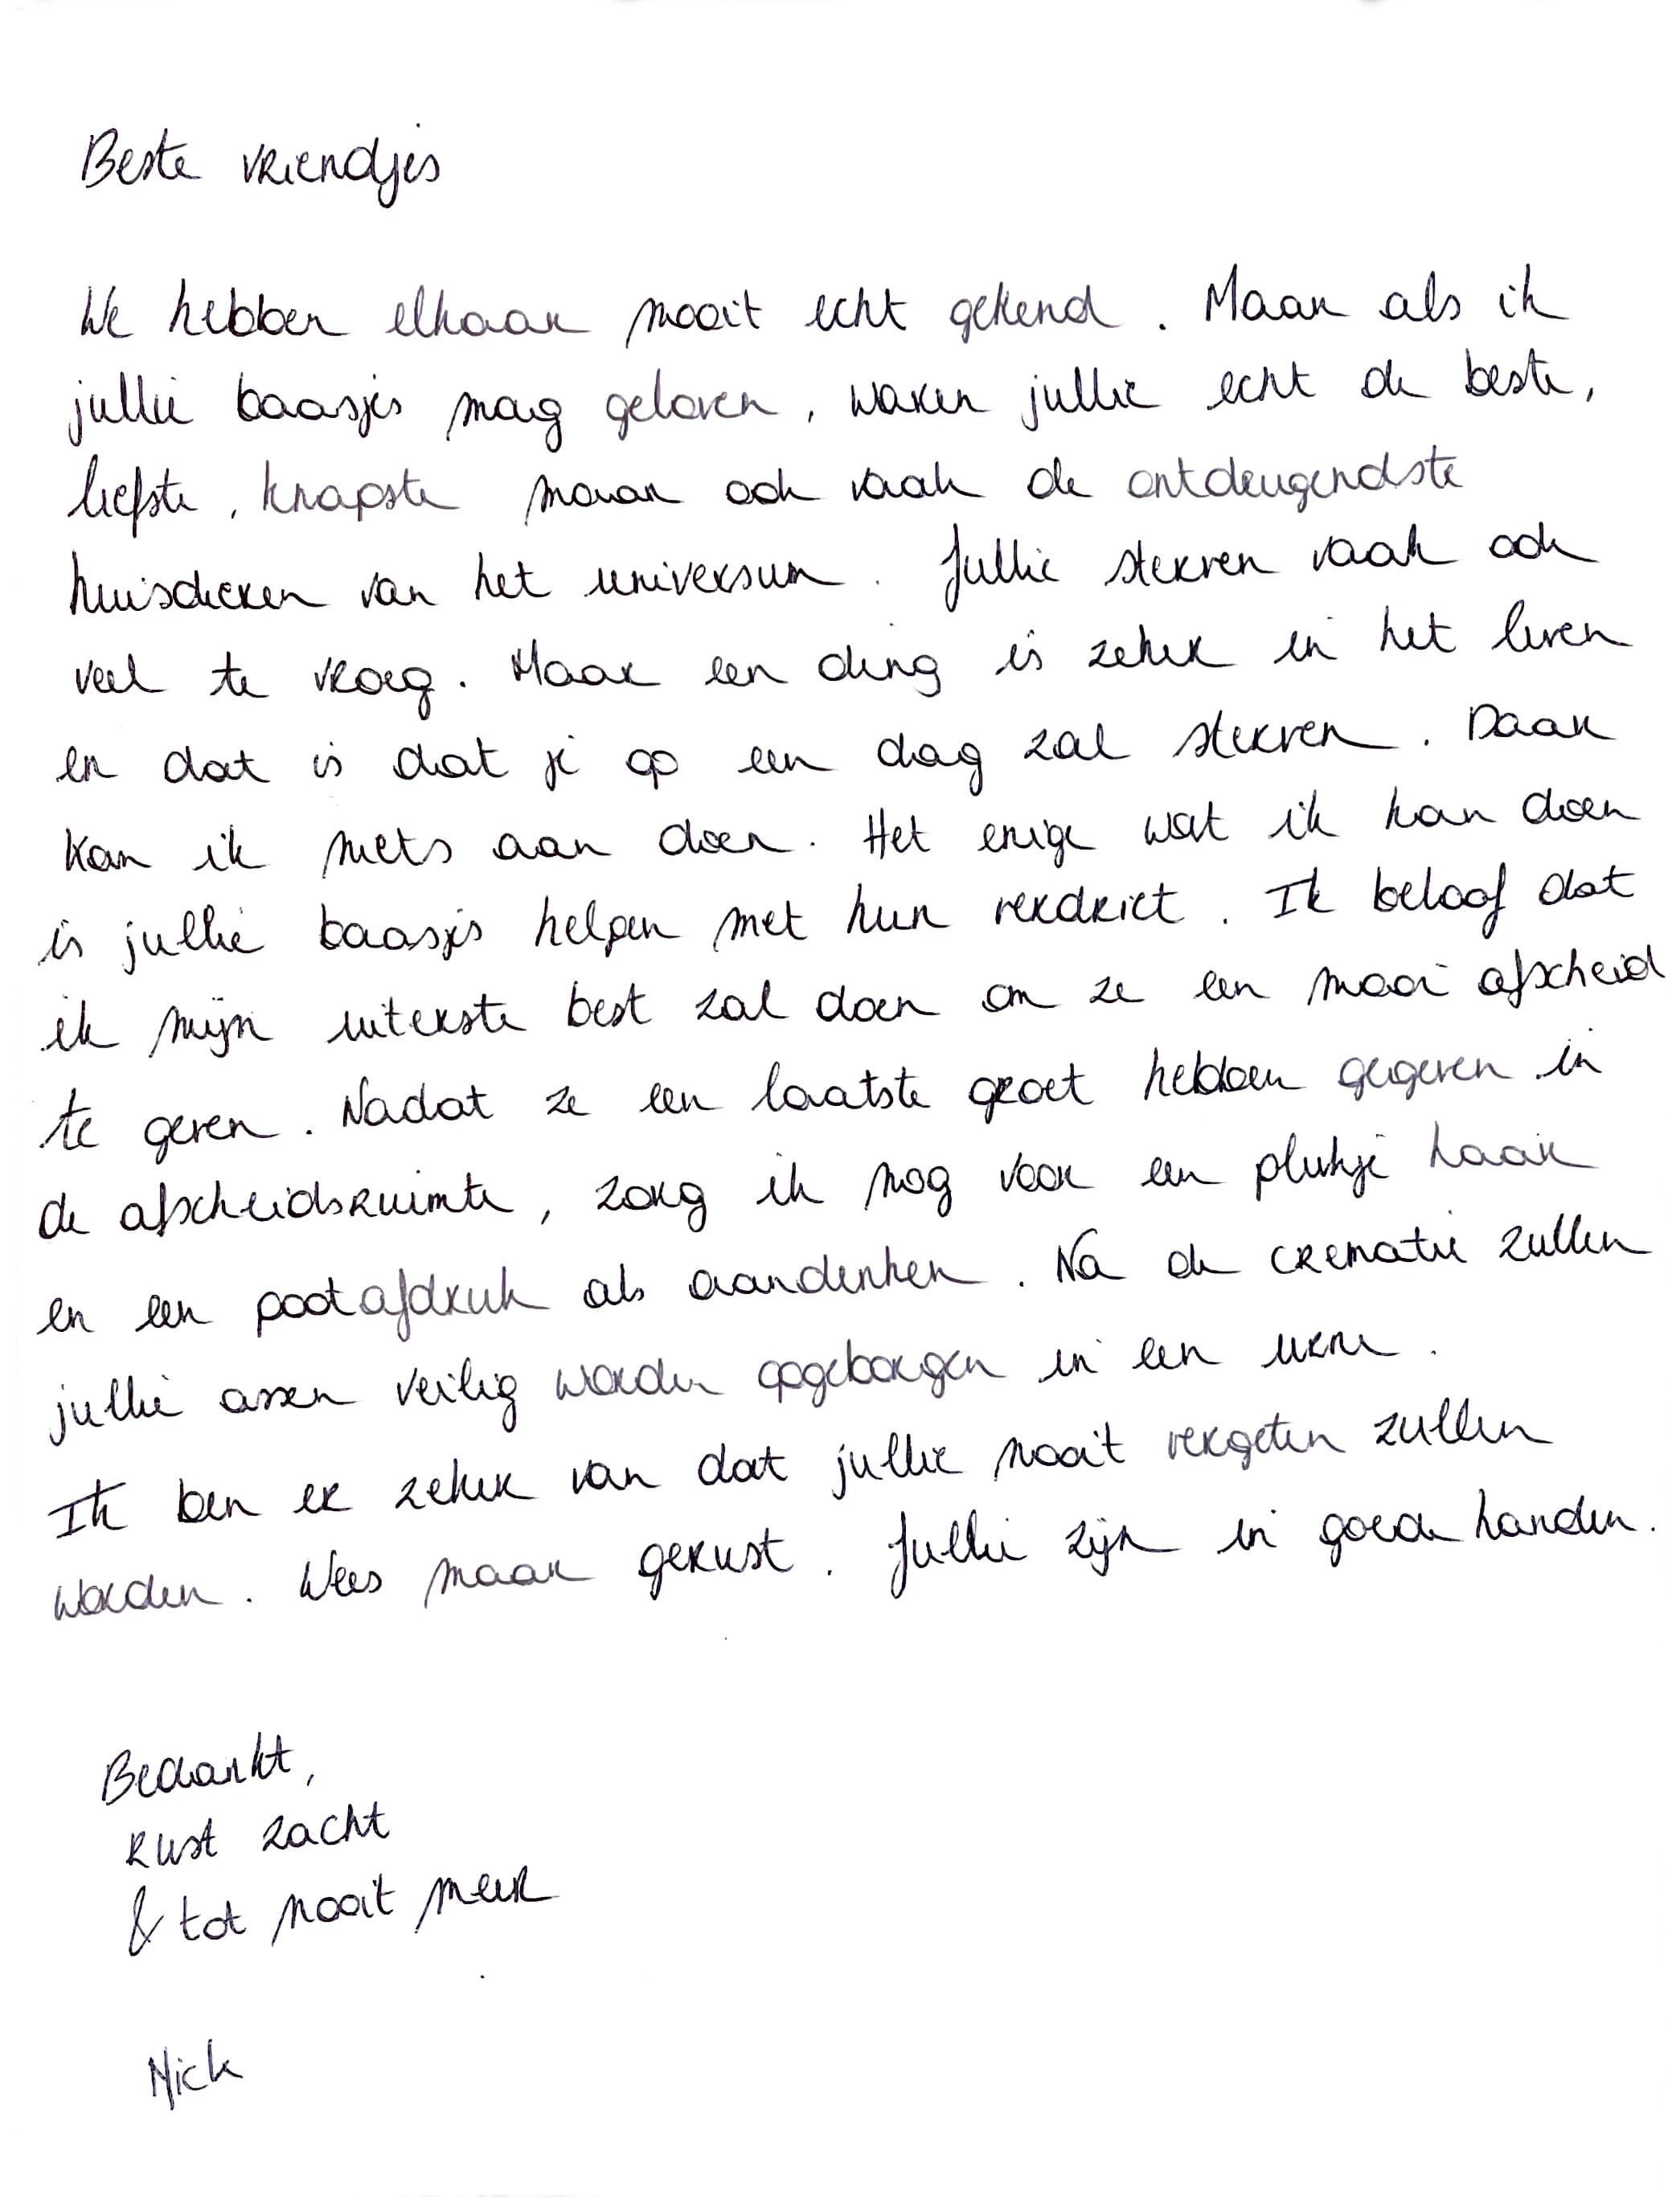 Beste vriendjes
We hebben elkaar nooit echt gekend. Maar als ik
jullie baasjes mag geloven, waren jullie echt de beste,
liefste, knapste maar ook vaak de ontdeugendste
huisdieren van het universum. Jullie sterven vaak ook
veel te vroeg. Maar een ding is zeker in het leven
en dat is dat je op een dag zal sterven. Daar
kan ik niets aan doen. Het enige wat ik kan doen
is jullie baasjes helpen met hun verdriet. Ik beloof dat
ik mijn uiterste best zal doen om ze een mooi afscheid
te geven. Nadat ze een laatste groet hebben gegeven in
de afscheidsruimte, zorg ik nog voor een plukje haar
en een pootafdruk als aandenken. Na de crematie zullen
jullie assen veilig worden opgeborgen in een urne.
Ik ben er zeker van dat jullie nooit vergeten zullen
worden. Wees maar gerust. Jullie zijn in goede handen.
Bedankt,
rust zacht
& tot nooit meer
Nick